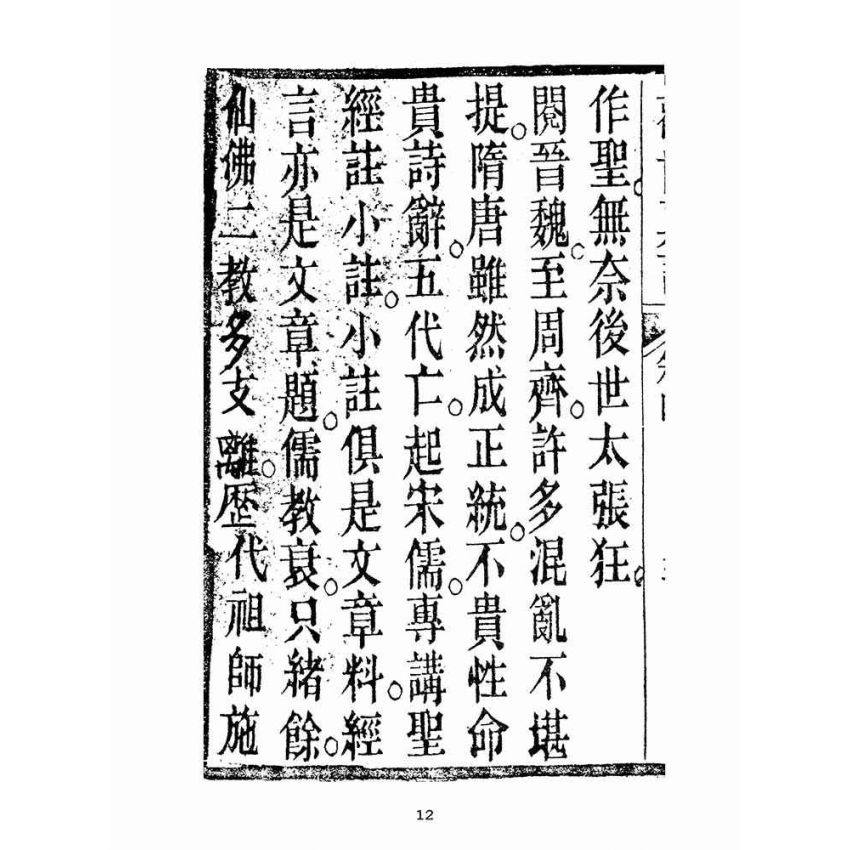 作聖。無奈後世太張狂。
閱晉魏。至周齊。許多混亂不堪
提。隋唐雖然成正統。不貴性命
貴詩辭。五代亡。起宋儒。專講聖
經註小註。小註俱是文章料。經
言亦是文章題。儒教衰。只緒餘。
仙佛二教多支離。歴代祖師施
12